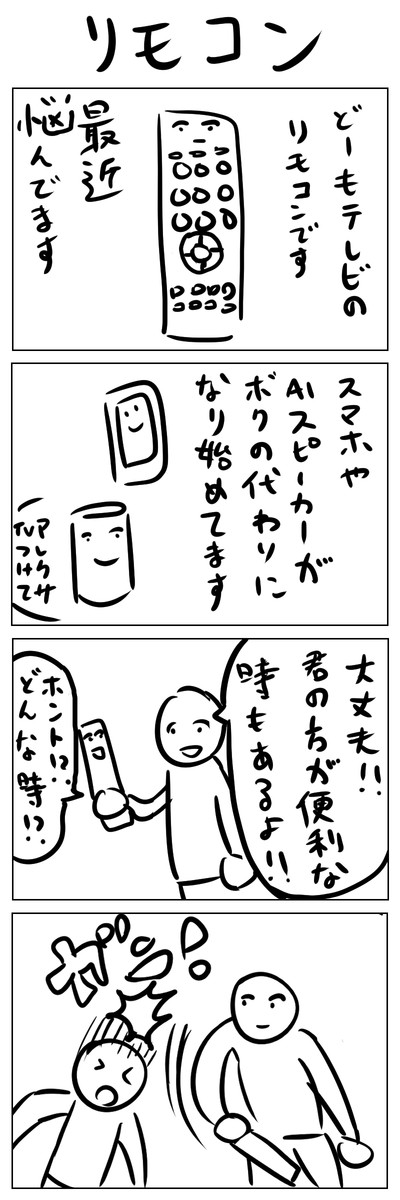 リモコン
どーもテレビの
リモコンです
最近
悩んでます
スマホや
AIスピーカーが
ボクの代わりに
なり始めてます
アレクサ
TVつけて
大丈夫!!
君の方が便利な
時もあるよ!!
ホント!?
どんな時!?
ガッ!